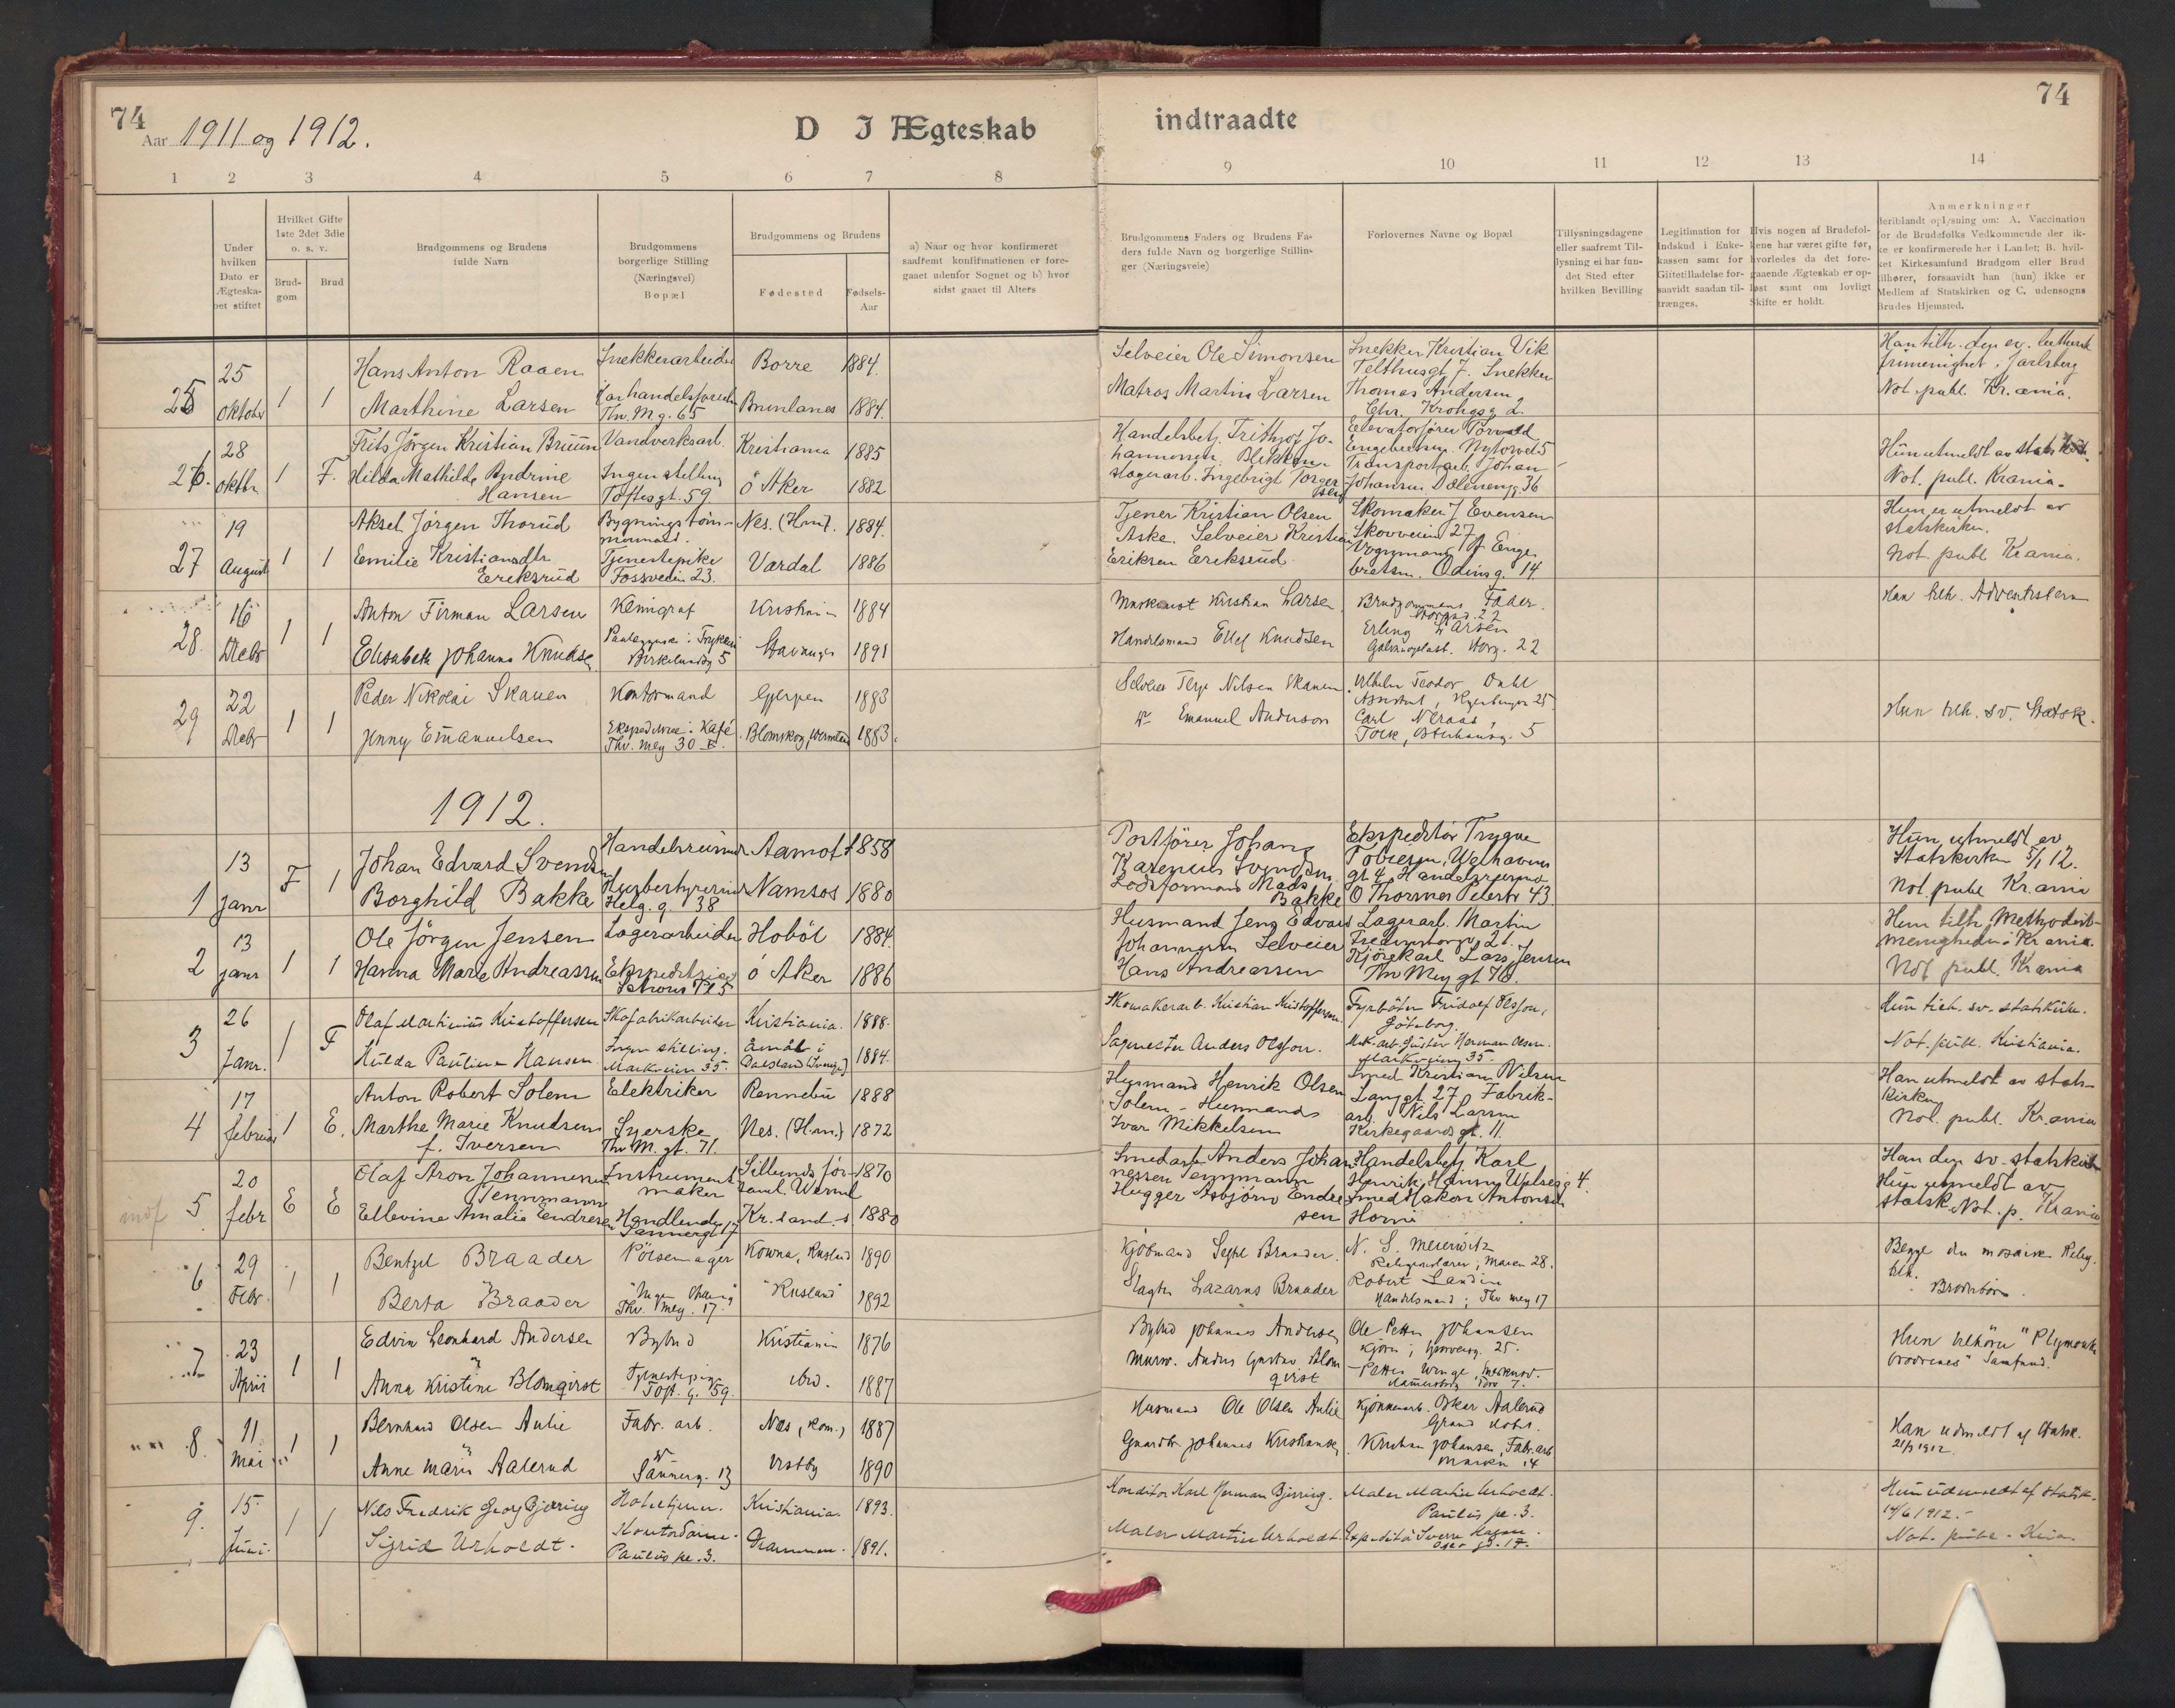 74
Aar 1911 og 1912.
D I Ægteskab
indtraadte
74
1 2 3 4 5 6 7 8 9 10 11 12 13 14
Under hvilken Dato er Ægteskabet stiftet
Hvilket Gifte 1ste 2det 3die o. s. v.
Brudgom
Brud
Brudgommens og Brudens fulde Navn
Brudgommens borgerlige Stilling (Næringsvei) Bopæl
Brudgommens og Brudens
Fødested
Fødsels-Aar
a) Naar og hvor konfirmeret saafremt konfirmationen er foregaaet udenfor Sognet og b) hvor sidst gaaet til Alters
Brudgommens Faders og Brudens Faders fulde Navn og borgerlige Stillinger (Næringsveie)
Forlovernes Navne og Bopæl
Tillysningsdagene eller saafremt Tillysning ei har fundet Sted efter hvilken Bevilling
Legitimation for Indskud i Enkekassen samt for Giftetilladelse forsaavidt saadan tiltrænges.
Hvis nogen af Brudefolkene har været gifte før, hvorledes da det foregaaende Ægteskab er opløst samt om lovligt Skifte er holdt.
Anmerkninger
deriblandt oplysning om: A. Vaccination for de Brudefolks Vedkommende der ikke er konfirmerede her i Landet; B. hvilket Kirkesamfund Brudgom eller Brud tilhører, forsaavidt han (hun) ikke er Medlem af Statskirken og C. udensogns Brudes Hjemsted.
25
25 oktober
1 1
Hans Anton Raaen
Snekkerarbeider
Borre 1884.
Marthine Larsen
Thv. M g. 65
Brunlanes 1884.
Selveier Ole Simonsen
Matros Martin Larsen
Snekker Kristian Vik
Telthusgt 7. Snekker
Thomas Andersen
Chr. Krohgsg 2.
Han tilh. den ev. lutherske
frimenighet, Jarlsberg
Not. publ. Kr.ania.
26.
28 oktbr.
1 F.
Frits Jørgen Kristian Bruun
Vandverksarb.
Kristiania 1885
Hilda Mathilde Andrine
Hansen
Ingen stilling
Toftesgt. 59
ö Aker 1882
Handelsbetj. Fritjof Jo-
hannessen
Engebretsen. Nytorvet 5
Transportarb. Johan
Johansen Dælenengg 36
Hun utmeldt av statskirk.
Not. publ. Krania.
27
19 August
1 1
Aksel Jørgen Thorud
Bygningstøm-
mermand.
Nes. (Hm). 1884.
Emilie Kristiansdtr
Eriksrud
Tjenestepike
Fossveien 23.
Vardal 1886
Tjener Kristian Olsen
Aske. Selveier Kristian
Eriksen Eriksrud.
Skomaker J Evensen
Skovveien 27
Vognmand A Enge-
bretsen. Odinsg. 14.
Hun er utmeldt av
statskirken.
Not. publ Krania.
28.
16 Decbr
1 1
Anton Firman Larsen
Kemigraf
Kristiania 1884
Elisabeth Johanne Knudsen
Birkelundsg 5
Stavanger 1891
Kristian Larsen.
Handelsmand Ellef Knudsen
Brudgommens Fader.
Erling Larsen
22
Han tilh. Adventisterne
29
22 Decbr
1 1
Peder Nikolai Skauen
Kontormand
Gjerpen 1883
Jenny Emanuelsen
Ekspeditrice i Kafé
Thv. Mey 30
Blomskog, Wermland 1883.
Selveier Terje Nilsen Skauen.
Emanuel Anderson
Vilhelm Teodor Dahl
25
Carl Neraas,
Tolk, Osterhausg. 5
Hun tilh. sv. Statsk.
1912.
1
13 Janr
F 1
Johan Edvard Svendsen
Handelsreisende
Aamot 1858
Borghild Bakke
Husbestyrerinde
Helg. g. 38
Namsos 1880
Postfører Johans
Svendsen.
Lodsformand Mads
Bakke
Ekspeditør Trygve
Tobiesen, Welhavens
gt 4. Handelsreisende
O Thornes Pilestr 43.
Hun utmeldt av
Statskirken 5/1 12.
Not. publ Krania
2
13 janr
1 1
Ole Jörgen Jensen
Lagerarbeider
Hoböl 1884.
Hanna Marie Andreassen
Ekspeditrice
ö Aker 1886
Husmand Jens Edvard
Johannesen Selveier
Hans Andreassen
Lagerarb. Martin
21.
Kjörekarl Lars Jensen
Thv Mey gt 76.
Hun tilh. Methodist-
menigheden i Krania.
Not publ. Krania
3
26 Janr.
1 F
Olaf Martinius Kristoffersen
Skofabrikarbeider
Kristiania. 1888.
Hulda Pauline Hansen
Ingen stilling.
Markveien 35.
Åmål i
Dalsland (Sverige) 1884.
Skomakerarb. Kristian Kristoffersen.
Sagmester Anders Olsson.
Fyrböter Fridolf Olsson,
Göteborg.
Mek. arb. Gustav Herman Olsen.
Markveien 35.
Hun tilh. sv. statskirke.
Not. publ. Kristiania.
4
17 februar
1 E.
Anton Robert Solem
Elektriker
Rennebu 1888
Marthe Marie Knudsen
f. Iversen
Syerske
Thv M. gt. 71.
Nes. (Hm.) 1872
Husmand Henrik Olsen
Solem - Husmand
Ivar Mikkelsen
Smed Kristian Nilsen
Langgt. 27. Fabrik-
arb. Nils Larsen
Kirkegaardsgt. 11.
Han utmeldt av stats-
kirken
Not. publ. Krania
5
20 febr
E E
Olaf Aron Johannessen
Tennmann
Instrument-
maker
1870
Ellevine Amalie Endresen
Handlende
Sannergt 17
Kr.sand. s 1880
Smedarb Anders Johan-
nessen Tennmann
Hugger Asbjørn Endre-
sen
Handelsbetj. Karl
Smed Hakon Antonsen
Han den sv. statskirke
Hun utmeldt av
statsk. Not. p. Krania
6
29 Febr.
1 1
Bentzel Braader
Pölsemager
Kowna, Rusland 1890
Berta Braader
Thv. Mey. 17.
"Rusland" 1892
Kjöbmand Braader.
Slagter Lazarus Braader
N. S. Meierowitz
Religionslærer,
Robert Landin
Handelsmand; Thv mey 17
Begge den mosaiske Relig.
tilh.
Brödrebörn.
7
23 April
1 1
Edvin Leonhard Andersen
Bybud
Kristiania 1876
Anna Kristine Blomqvist
Toft. g. 59.
ibid. 1887
Bybud Johannes Andersen
Murer. Anders Gustav Blom-
qvist
Ole Petter Johansen
25.
Petter Winge,
Hun tilhörer "Plymouth
brödrenes" Samfund.
8.
11 Mai
1 1
Bernhard Olsen Aulie
Fabr. arb.
Næs, (Rom.) 1887
Anne Marie Aalerud
Sannerg. 13
Vestby 1890
Husmand Ole Olsen Aulie
Gaardbr Johannes Kristiansen
Oskar Aalerud
Grand Hotel.
Kristian Johansen, Fabr. arb
14
Han udmeldt af Statsk.
1912.
9.
15. Juni.
1 1
Nils Fredrik Georg Bjerring
Hoteltjener.
Kristiania. 1893.
Sigrid Urholdt.
Kontordame.
Paulus pl. 3.
Drammen. 1891.
Konditor Karl Herman Bjerring.
Maler Martin Urholdt
Maler Martin Urholdt.
Paulus pl. 3.
Expeditör Sverre
Hun udmeldt af statsk.
14/6 1912.
Not. publ. Kria.